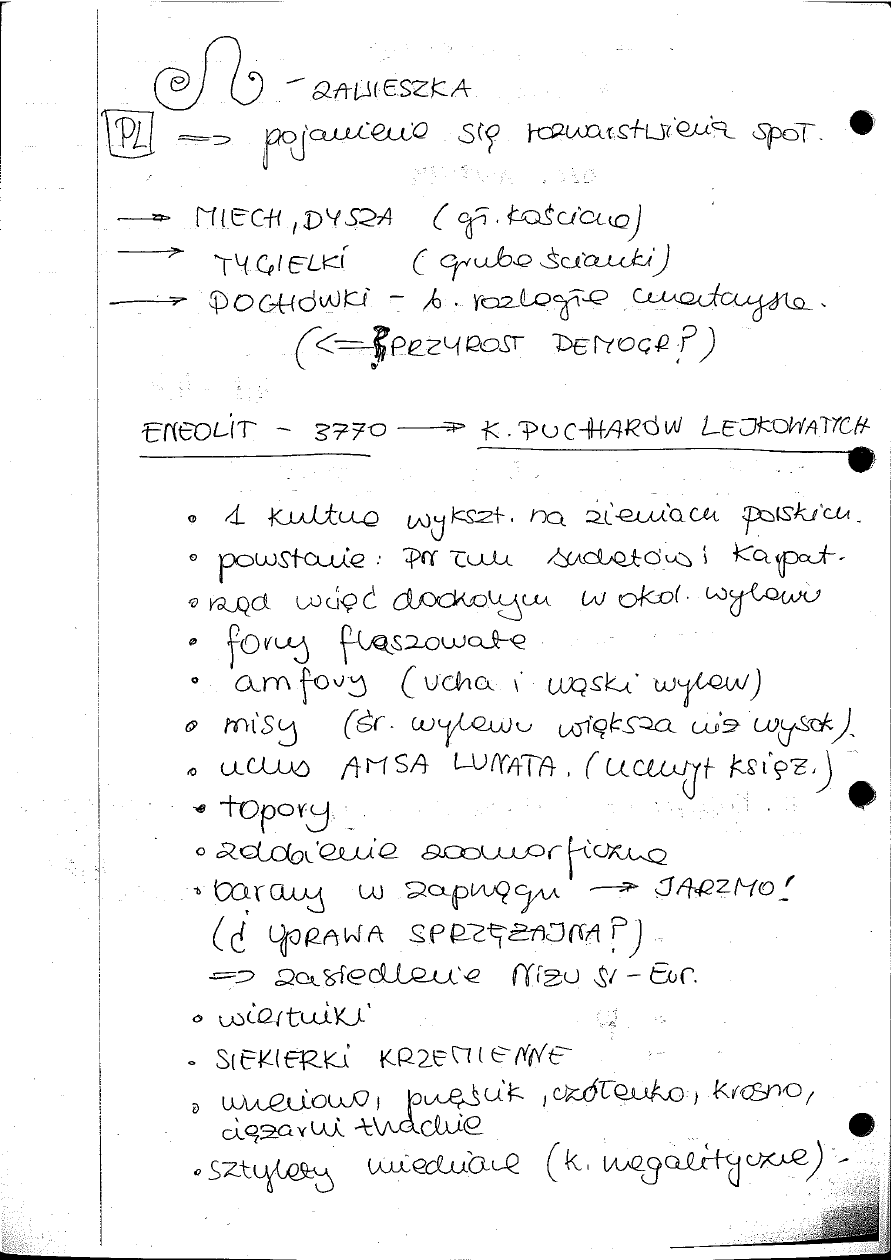 – ZAWIESZKA
PL ⇒ pojawienie się rozwarstwienia społ.
→ MIECH, DYSZA (gł. kościane)
→ TYGIELKI (grube ścianki)
→ POCHÓWKI – b. rozległe cmentarzyska.
(<= PRZYROST DEMOGR?)
ENEOLIT – 3770 → K. PUCHARÓW LEJKOWATYCH
• 1 kultura wykszt. na ziemiach polskich.
• powstanie: PN Sudetów i Karpat.
• rząd wcięć dookolnych w okol. wylewu
• formy flaszowate
• amfory (ucha i wąski wylew)
• misy (śr. wylewu większa niż wysok).
• ucho AMSA LUNATA. (uchwyt księż.)
• topory
• zdobienie zoomorficzne
• barany w zaprzęgu → JARZMO!
(¿ UPRAWA SPRZĘŻAJNA?)
⇒ zasiedlenie Niżu Śr – Eur.
• wiertniki
• SIEKIERKI KRZEMIENNE
• wrzeciono, przęślik, czółenko, krosno,
ciężarki tkackie
• sztylety miedziane (k. megalityczne) –